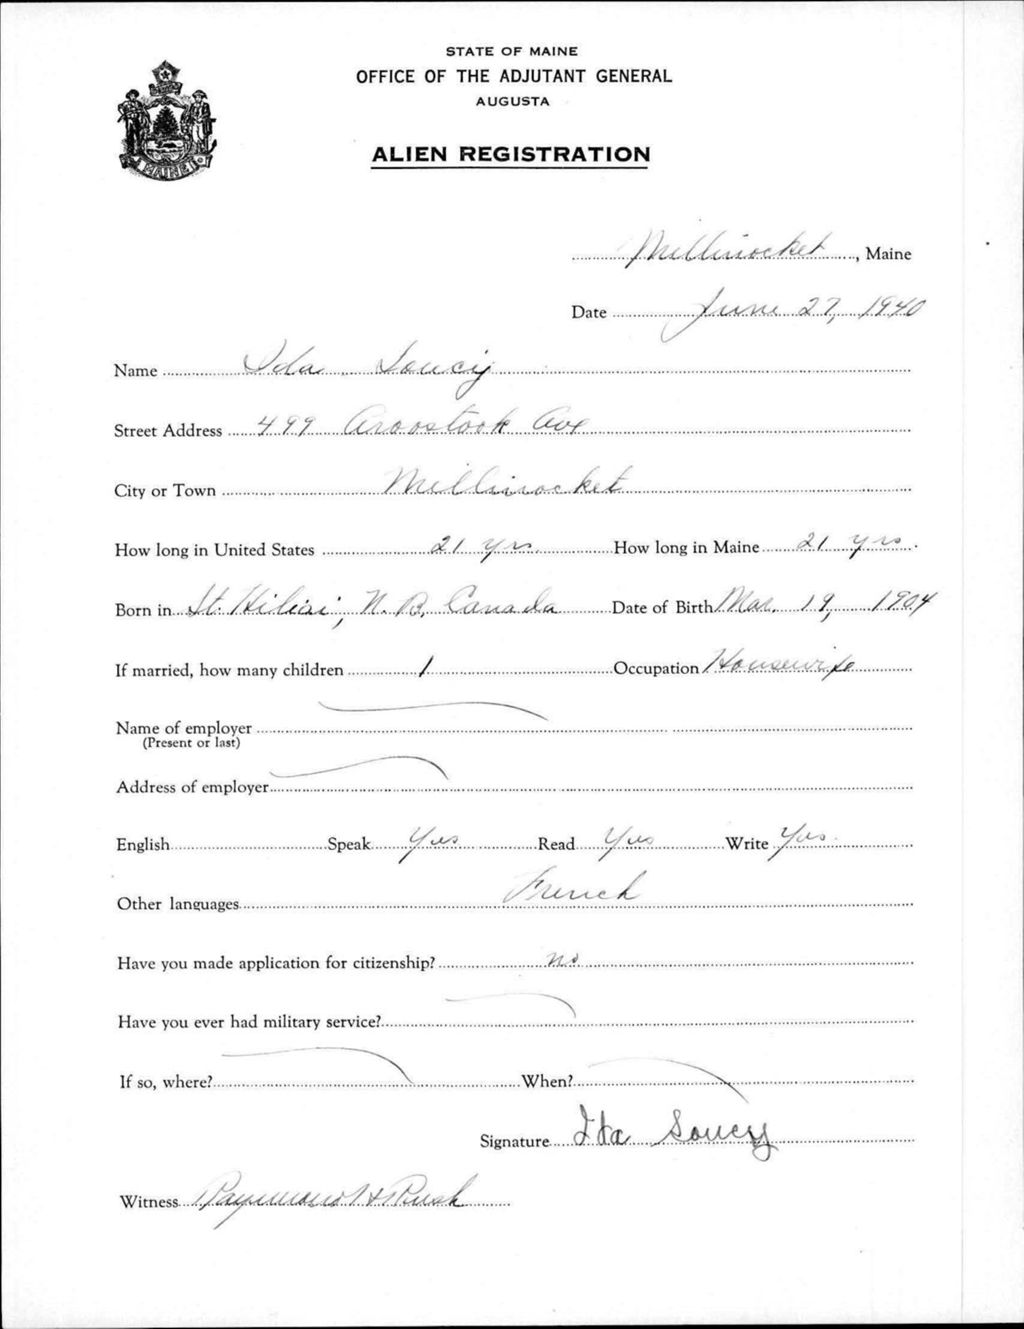 STATE OF MAINE
OFFICE OF THE ADJUTANT GENERAL
AUGUSTA
ALIEN REGISTRATION
MAINE
Millinocket, Maine
Date June 27, 1940
Name Ida Soucy
Street Address 499 Aroostook Ave
City or Town Millinocket
How long in United States 21 yrs. How long in Maine 21 yrs.
Born in St. N. B. Canada Date of Birth Mar. 19, 1904
If married, how many children 1 Occupation Housewife
Name of employer
(Present or last)
Address of employer
English Speak Yes Read Yes Write Yes
Other languages French
Have you made application for citizenship? no
Have you ever had military service?
If so, where? When?
Signature Ida Soucy
Witness Raymond H Rush